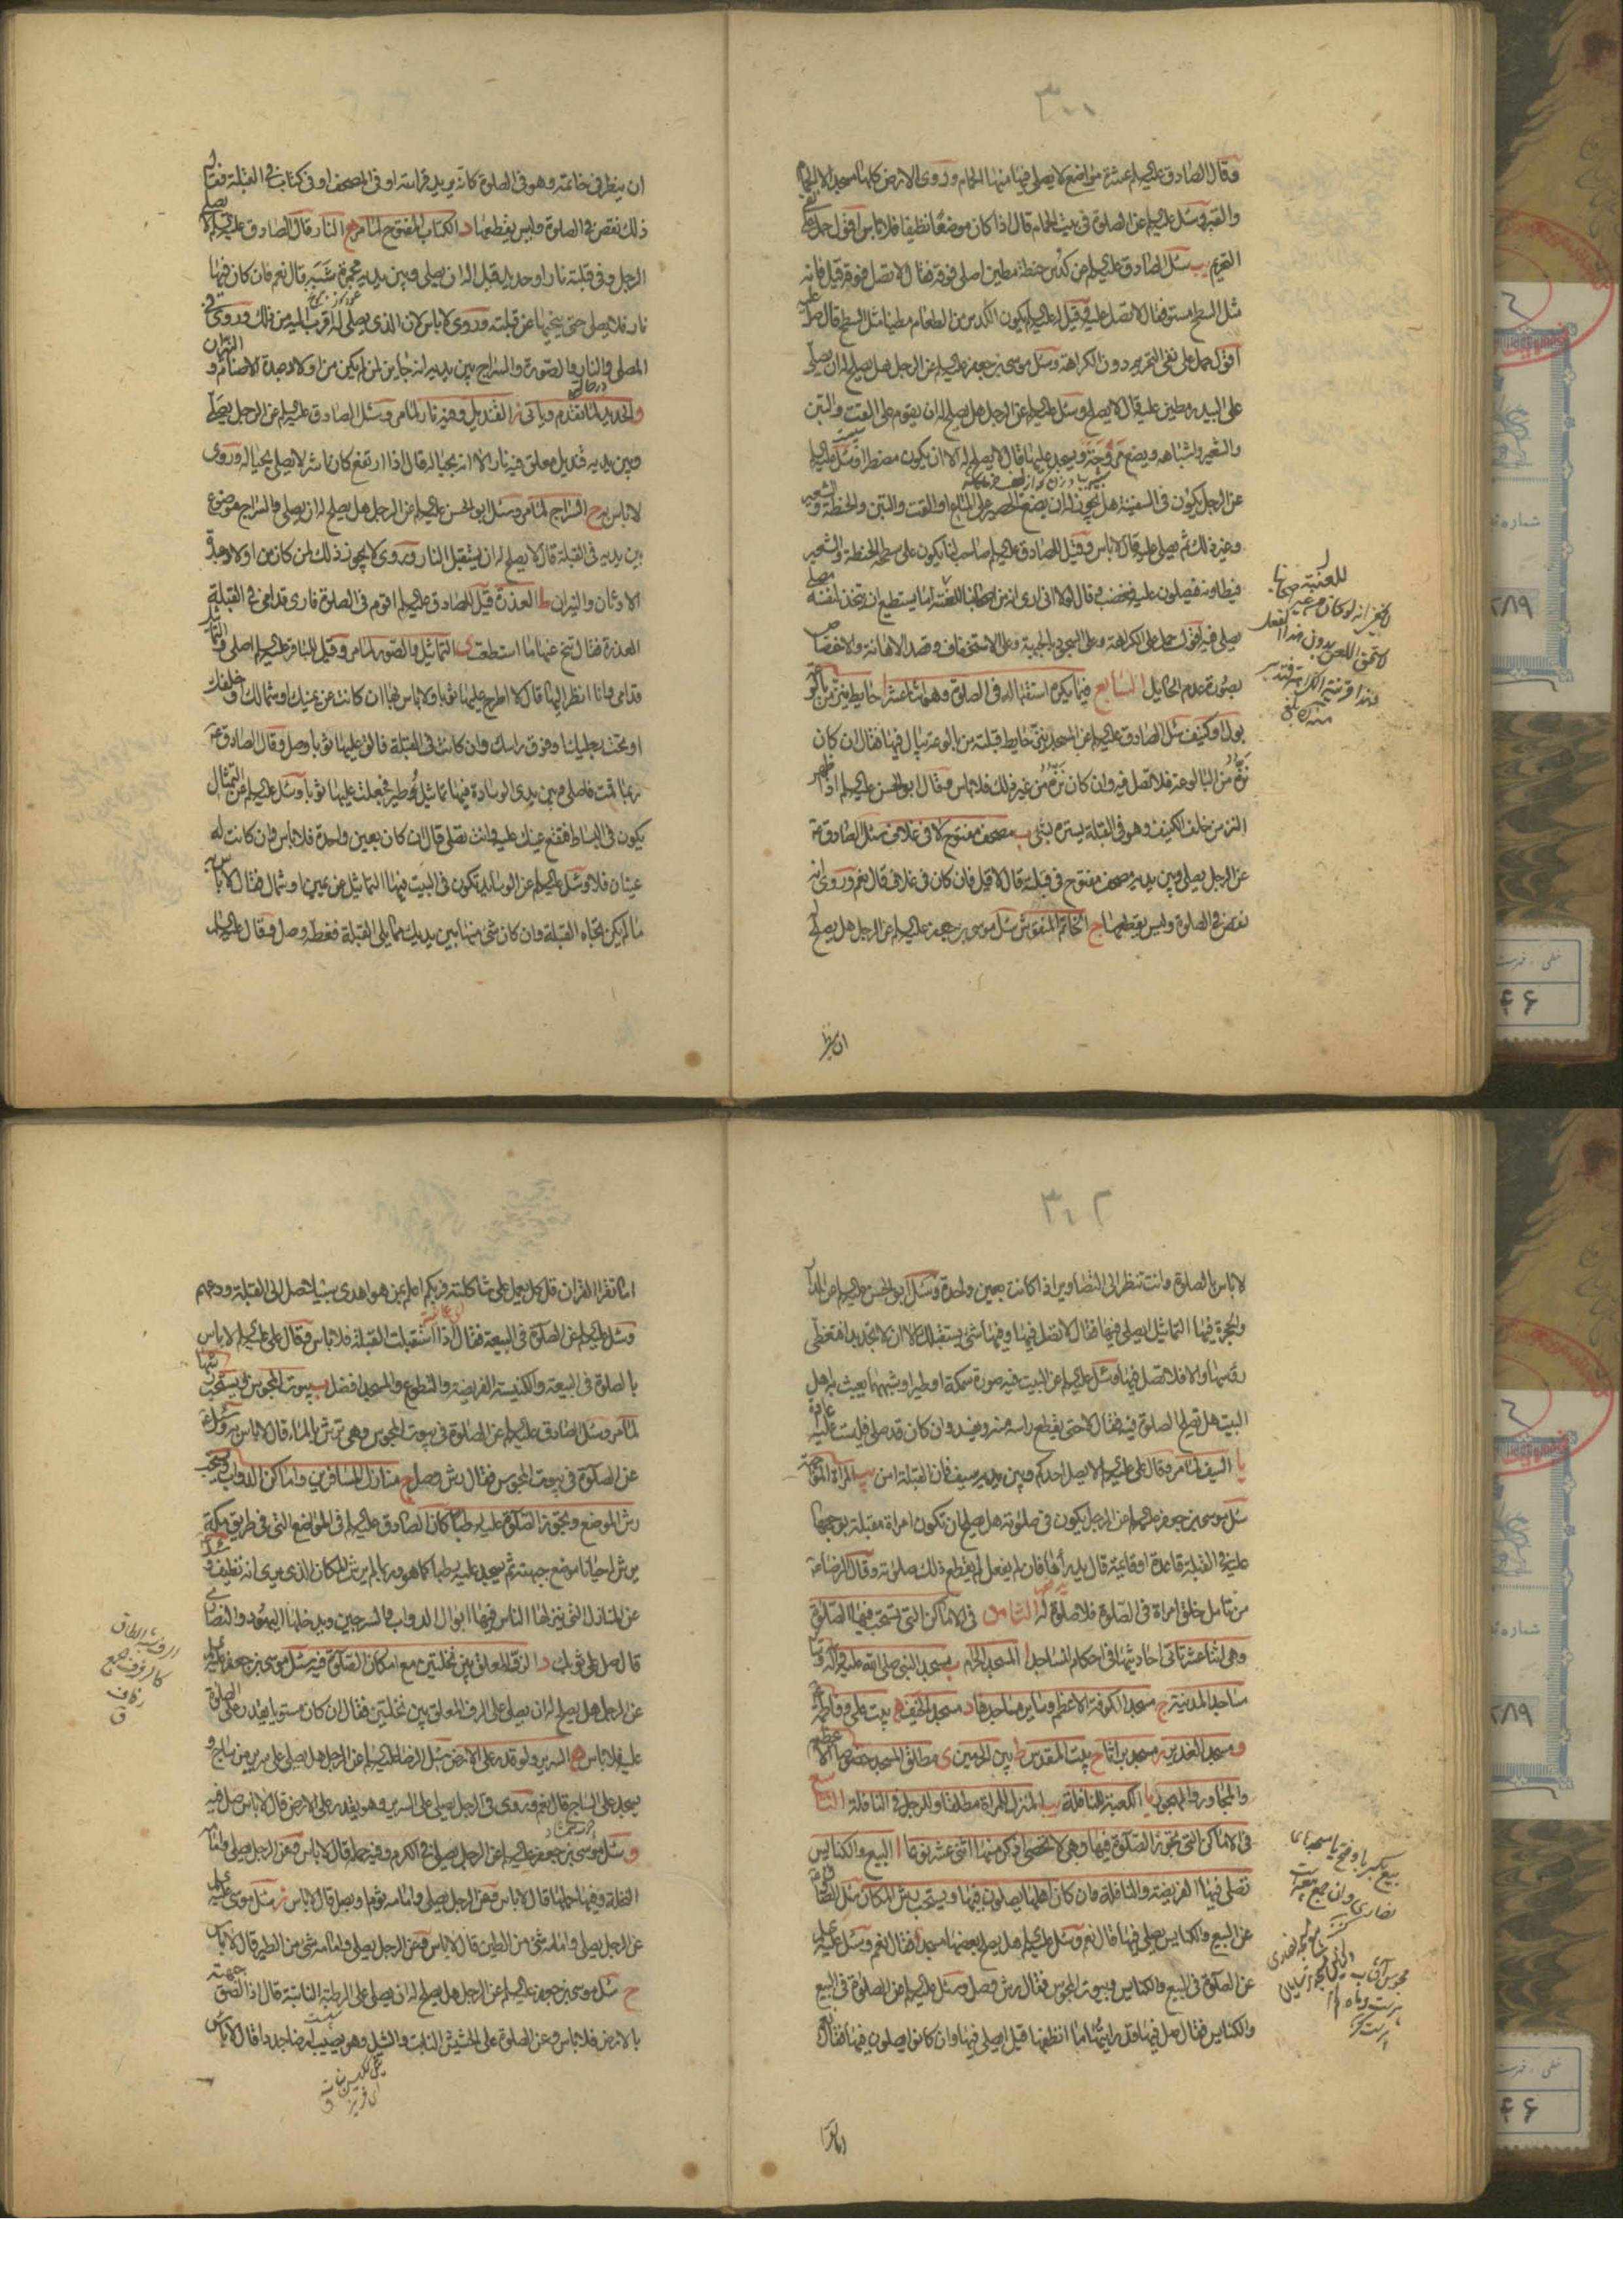 ٣٠٠
وقال الصادق عليه السلام عشرة مواضع لا يصلى فيها منها الحمام وروى الارض كلها مسجد الا الحمام
والقبر وسئل عليه السلام عن الصلوة في بيت الحمام قال اذا كان موضعا نظيفا فلا باس اقول حمل على نفى
التحريم يب سئل الصادق عليه السلام عن كدس حنطة مطين اصلى فوقه فقال لا تصل فوقه قيل فانه
مثل السطح مستو فقال لا تصل عليه وقيل له عليه السلام يكون الكدس من الطعام مطينا مثل السطح قال صل عليه
اقول حمل على نفى التحريم دون الكراهة وسئل موسى بن جعفر عليه السلام عن الرجل هل يصلح له ان يصلى
على البيدر مطين عليه قال لا يصلح وسئل عليه السلام عن الرجل هل يصلح له ان يقوم على القت والتبن
والشعير واشباهه ويضع مروحة ويسجد عليها قال لا يصلح له الا ان يكون مضطرا وسئل عليه السلام
عن الرجل يكون في السفينة هل يجوز له ان يضع الحصير على المتاع او القت والتبن والحنطة والشعير
وغير ذلك ثم يصلى عليه قال لا باس وقيل للصادق عليه السلام صاحب لنا يكون على سطحه الحنطة والشعير
فيطاونه فيصلون عليه فغضب وقال لولا انى ارى انه من اصحابنا للعنته اما يستطيع ان يتخذ لنفسه مصلى
يصلى فيه اقول حمل على الكراهة وعلى السجود بالجبهة وعلى الاستخفاف وقصد الاهانة والاختصاص
بصورة عدم الحايل السابع فيما يكره استقباله في الصلوة وهو اثنا عشر ا حايط ينز من بالوعة
بول او كنيف سئل الصادق عليه السلام عن المسجد ينز حايط قبلته من بالوعة يبال فيها فقال ان كان
نزه من البالوعة فلا تصل فيه وان كان نزه من غير ذلك فلا باس وقال ابو الحسن عليه السلام اذا ظهر
النز من خلف الكنيف وهو في القبلة يستره بشئ ب مصحف مفتوح لا في غلاف سئل الصادق ع
عن الرجل يصلى وبين يديه مصحف مفتوح في قبلته قال لا قيل فان كان في غلاف قال نعم وروى انه
نقص في الصلوة وليس يقطعها ج الخاتم المنقوش سئل موسى بن جعفر عليه السلام عن الرجل هل يصلح له
ان ينظر
ان ينظر في خاتمه وهو في الصلوة كانه يريد قرائته او في المصحف او في كتاب في القبلة فقال
ذلك نقص في الصلوة وليس يقطعها د الكتاب المفتوح لما مر ه النار قال الصادق عليه السلام لا يصلى
الرجل وفي قبلته نار او حديد قيل اله ان يصلى وبين يديه مجمرة شبه قال نعم فان كان فيها
نار فلا يصلى حتى ينحيها عن قبلته وروى لا باس لان الذى يصلى له اقرب اليه من ذلك وروى في
المصلى والنار والصورة والسراج بين يديه انه جايز لمن لم يكن من اولاد عبدة الاصنام والنيران
و الحديد لما تقدم وياتى ز القنديل وفيه نار لما مر وسئل الصادق عليه السلام عن الرجل يصلى
وبين يديه قنديل معلق فيه نار الا انه بحياله قال اذا ارتفع كان اشر لا يصلى بحياله وروى
لا باس به ح السراج لما مر وسئل ابو الحسن عليه السلام عن الرجل هل يصلح له ان يصلى والسراج موضوع
بين يديه في القبلة قال لا يصلح له ان يستقبل النار وروى لا يجوز ذلك لمن كان من اولاد عبدة
الاوثان والنيران ط العذرة قيل للصادق عليه السلام اقوم في الصلوة فارى قدامى في القبلة
العذرة فقال تنح عنها ما استطعت ى التماثيل والصور لما مر وقيل للباقر عليه السلام اصلى والتماثيل
قدامى وانا انظر اليها قال لا اطرح عليها ثوبا ولا باس بها ان كانت عن يمينك او شمالك او خلفك
او تحت رجليك او فوق راسك وان كانت في القبلة فالق عليها ثوبا وصل وقال الصادق ع
ربما قمت فاصلى وبين يدى الوسادة فيها تماثيل طير فجعلت عليها ثوبا وسئل عليه السلام عن التمثال
يكون في البساط فتقع عينك عليه وانت تصلى قال ان كان بعين واحدة فلا باس وان كانت له
عينان فلا وسئل عليه السلام عن الوسايد تكون في البيت فيها التماثيل عن يمين او شمال فقال لا باس به
ما لم يكن تجاه القبلة وان كان شئ منها بين يديك مما يلى القبلة فغطه وصل وقال عليه السلام
٣٠٢
لا باس بالصلوة وانت تنظر الى التصاوير اذا كانت بعين واحدة وسئل ابو الحسن عليه السلام عن الدار
والحجرة فيها التماثيل ايصلى فيها فقال لا تصل فيها وفيها شئ يستقبلك الا ان لا تجد بدا فتقطع
رؤسها والا فلا تصل فيها وسئل عليه السلام عن البيت فيه صورة سمكة او طير او شبهها يعبث به اهل
البيت هل تصلح الصلوة فيه فقال لا حتى يقطع راسه منه ويفسد وان كان قد صلى فليست عليه اعادة
يا السيف لما مر وقال على عليه السلام لا يصل احدكم وبين يديه سيف فان القبلة امن يب المراة المواجهة
سئل موسى بن جعفر عليه السلام عن الرجل يكون في صلوته هل يصلح ان تكون امراة مقبلة بوجهها
عليه في القبلة قاعدة او قائمة قال يدرأها فان لم يفعل لم يقطع ذلك صلوته وقال الرضا ع
من تامل خلق امراة في الصلوة فلا صلوة له الثامن في الاماكن التى تستحب فيها الصلوة
وهى اثنا عشر تاتى احاديثها في احكام المساجد ا المسجد الحرام ب مسجد النبى صلى الله عليه واله وسائر
مساجد المدينة ج مسجد الكوفة الاعظم وساير مساجدها د مسجد الخيف ه بيت على وفاطمة ع
و مسجد الغدير ز مسجد براثا ح بيت المقدس ط بين الحرمين ى مطلق المسجد خصوصا الاعظم
والمجاور والمهجور يا الكعبة للنافلة يب المنزل للمراة مطلقا وللرجل في النافلة التاسع
في الاماكن التى تجوز الصلوة فيها وهى لا تحصى اذكر منها اثنى عشر نوعا ا البيع والكنايس
تصلى فيها الفريضة والنافلة وان كان اهلها يصلون فيها ويستحب رش المكان سئل الصادق ع
عن البيع والكنايس يصلى فيها قال نعم وسئل عليه السلام هل يصلح بعضها مسجدا فقال نعم وسئل عليه السلام
عن الصلوة في البيع والكنايس وبيوت المجوس فقال رش وصل وسئل عليه السلام عن الصلوة في البيع
والكنايس فقال صل فيها قد رايتها ما انظفها قيل اصلى فيها وان كانوا يصلون فيها فقال نعم
اما تقرا
اما تقرا القران قل كل يعمل على شاكلته فربكم اعلم بمن هو اهدى سبيلا صل الى القبلة ودعهم
وسئل عليه السلام عن الصلوة في البيعة فقال اذا استقبلت القبلة فلا باس وقال على عليه السلام لا باس
بالصلوة في البيعة والكنيسة الفريضة والتطوع والمسجد افضل ب بيوت المجوس ويستحب رشها
لما مر وسئل الصادق عليه السلام عن الصلوة في بيوت المجوس وهى ترش بالماء قال لا باس به وسئل ع
عن الصلوة في بيوت المجوس فقال رش وصل ج منازل المسافرين واماكن الدواب ويستحب
رش الموضع وتجوز الصلوة عليه رطبا كان الصادق عليه السلام في المواضع التى في طريق مكة
يرش احيانا موضع جبهته ثم يسجد عليه رطبا كما هو وربما لم يرش المكان الذى يرى انه نظيف وسئل
عن المنازل التى ينزلها الناس فيها ابوال الدواب والسرجين ويدخلها اليهود والنصارى
قال صل على ثوبك د الرف المعلق بين نخلتين مع امكان الصلوة فيه سئل موسى بن جعفر عليه السلام
عن الرجل هل يصلح له ان يصلى على الرف المعلق بين نخلتين فقال ان كان مستويا يقدر على الصلوة
عليه فلا باس ه السرير ولو قدر على الارض سئل الرضا عليه السلام عن الرجل هل يصلى على سرير من ساج و
يسجد على الساج قال نعم وروى في الرجل يصلى على السرير وهو يقدر على الارض قال لا باس صل فيه
و سئل موسى بن جعفر عليه السلام عن الرجل يصلى في الكرم وفيه حمله قال لا باس وعن الرجل يصلى وامامه
النخلة وفيها حملها قال لا باس وعن الرجل يصلى وامامه ثوم او بصل قال لا باس ز سئل موسى عليه السلام
عن الرجل يصلى وامامه شئ من الطين قال لا باس وعن الرجل يصلى وامامه شئ من الطير قال لا باس
ح سئل موسى بن جعفر عليه السلام عن الرجل هل يصلح له ان يصلى على الرطبة النابتة قال اذا الصق جبهته
بالارض فلا باس وعن الصلوة على الحشيش النابت والثيل وهو يصيب ارضا جددا قال لا باس
الرف شبه الطاق
شماره
٢٨٩
خطى . فهرست
٤٦